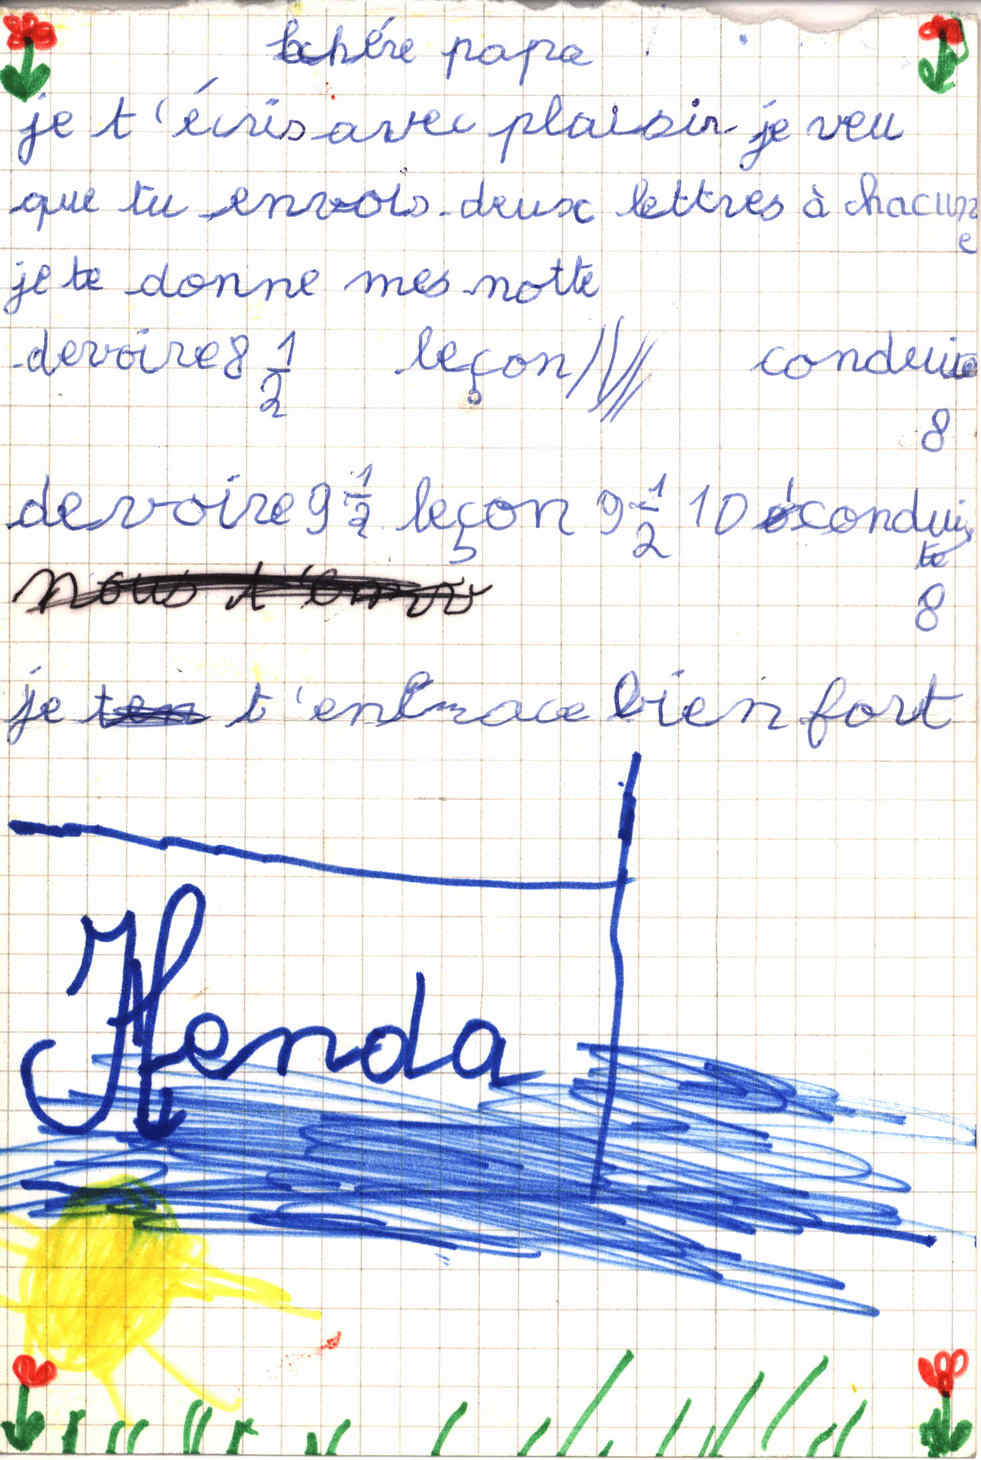 chére papa
je t'écris avec plaisir je veu
que tu envois deux lettres à chacune
je te donne mes notte
devoire 8 1/2 leçon conduite
8
devoire 9 1/2 leçon 9 1/2 10 conduite
8
nous t'env
je ten t'enbrace bien fort
Henda